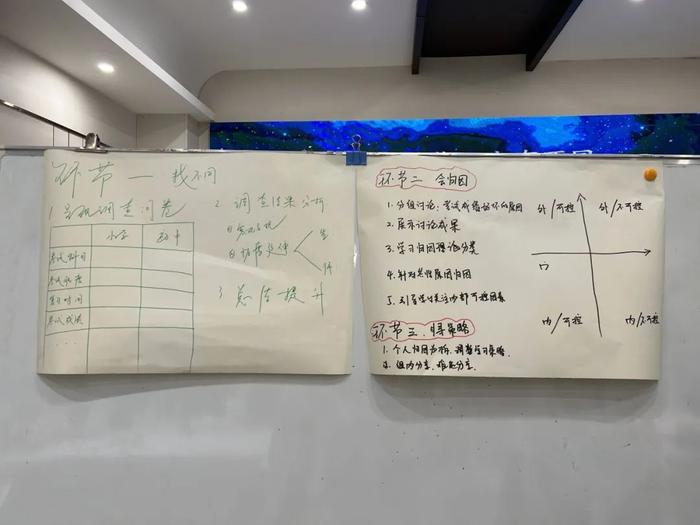 环节一 找不同
1 呈现调查问卷
小学
初中
考试科目
考试难度
复习时间
考试成绩
....
2 调查结果分析
3 总结提升
环节二 会归因
1. 分组讨论：考试成绩好坏的原因
2. 展示讨论成果
3. 学习归因理论分类
4. 针对其性原因归因
5. 引导学生关注内部可控因素
外/可控
外/不可控
内/可控
内/不可控
环节三. 寻策略
1. 个人归因分析, 调整学习策略.
2. 组内分享, 班级分享.